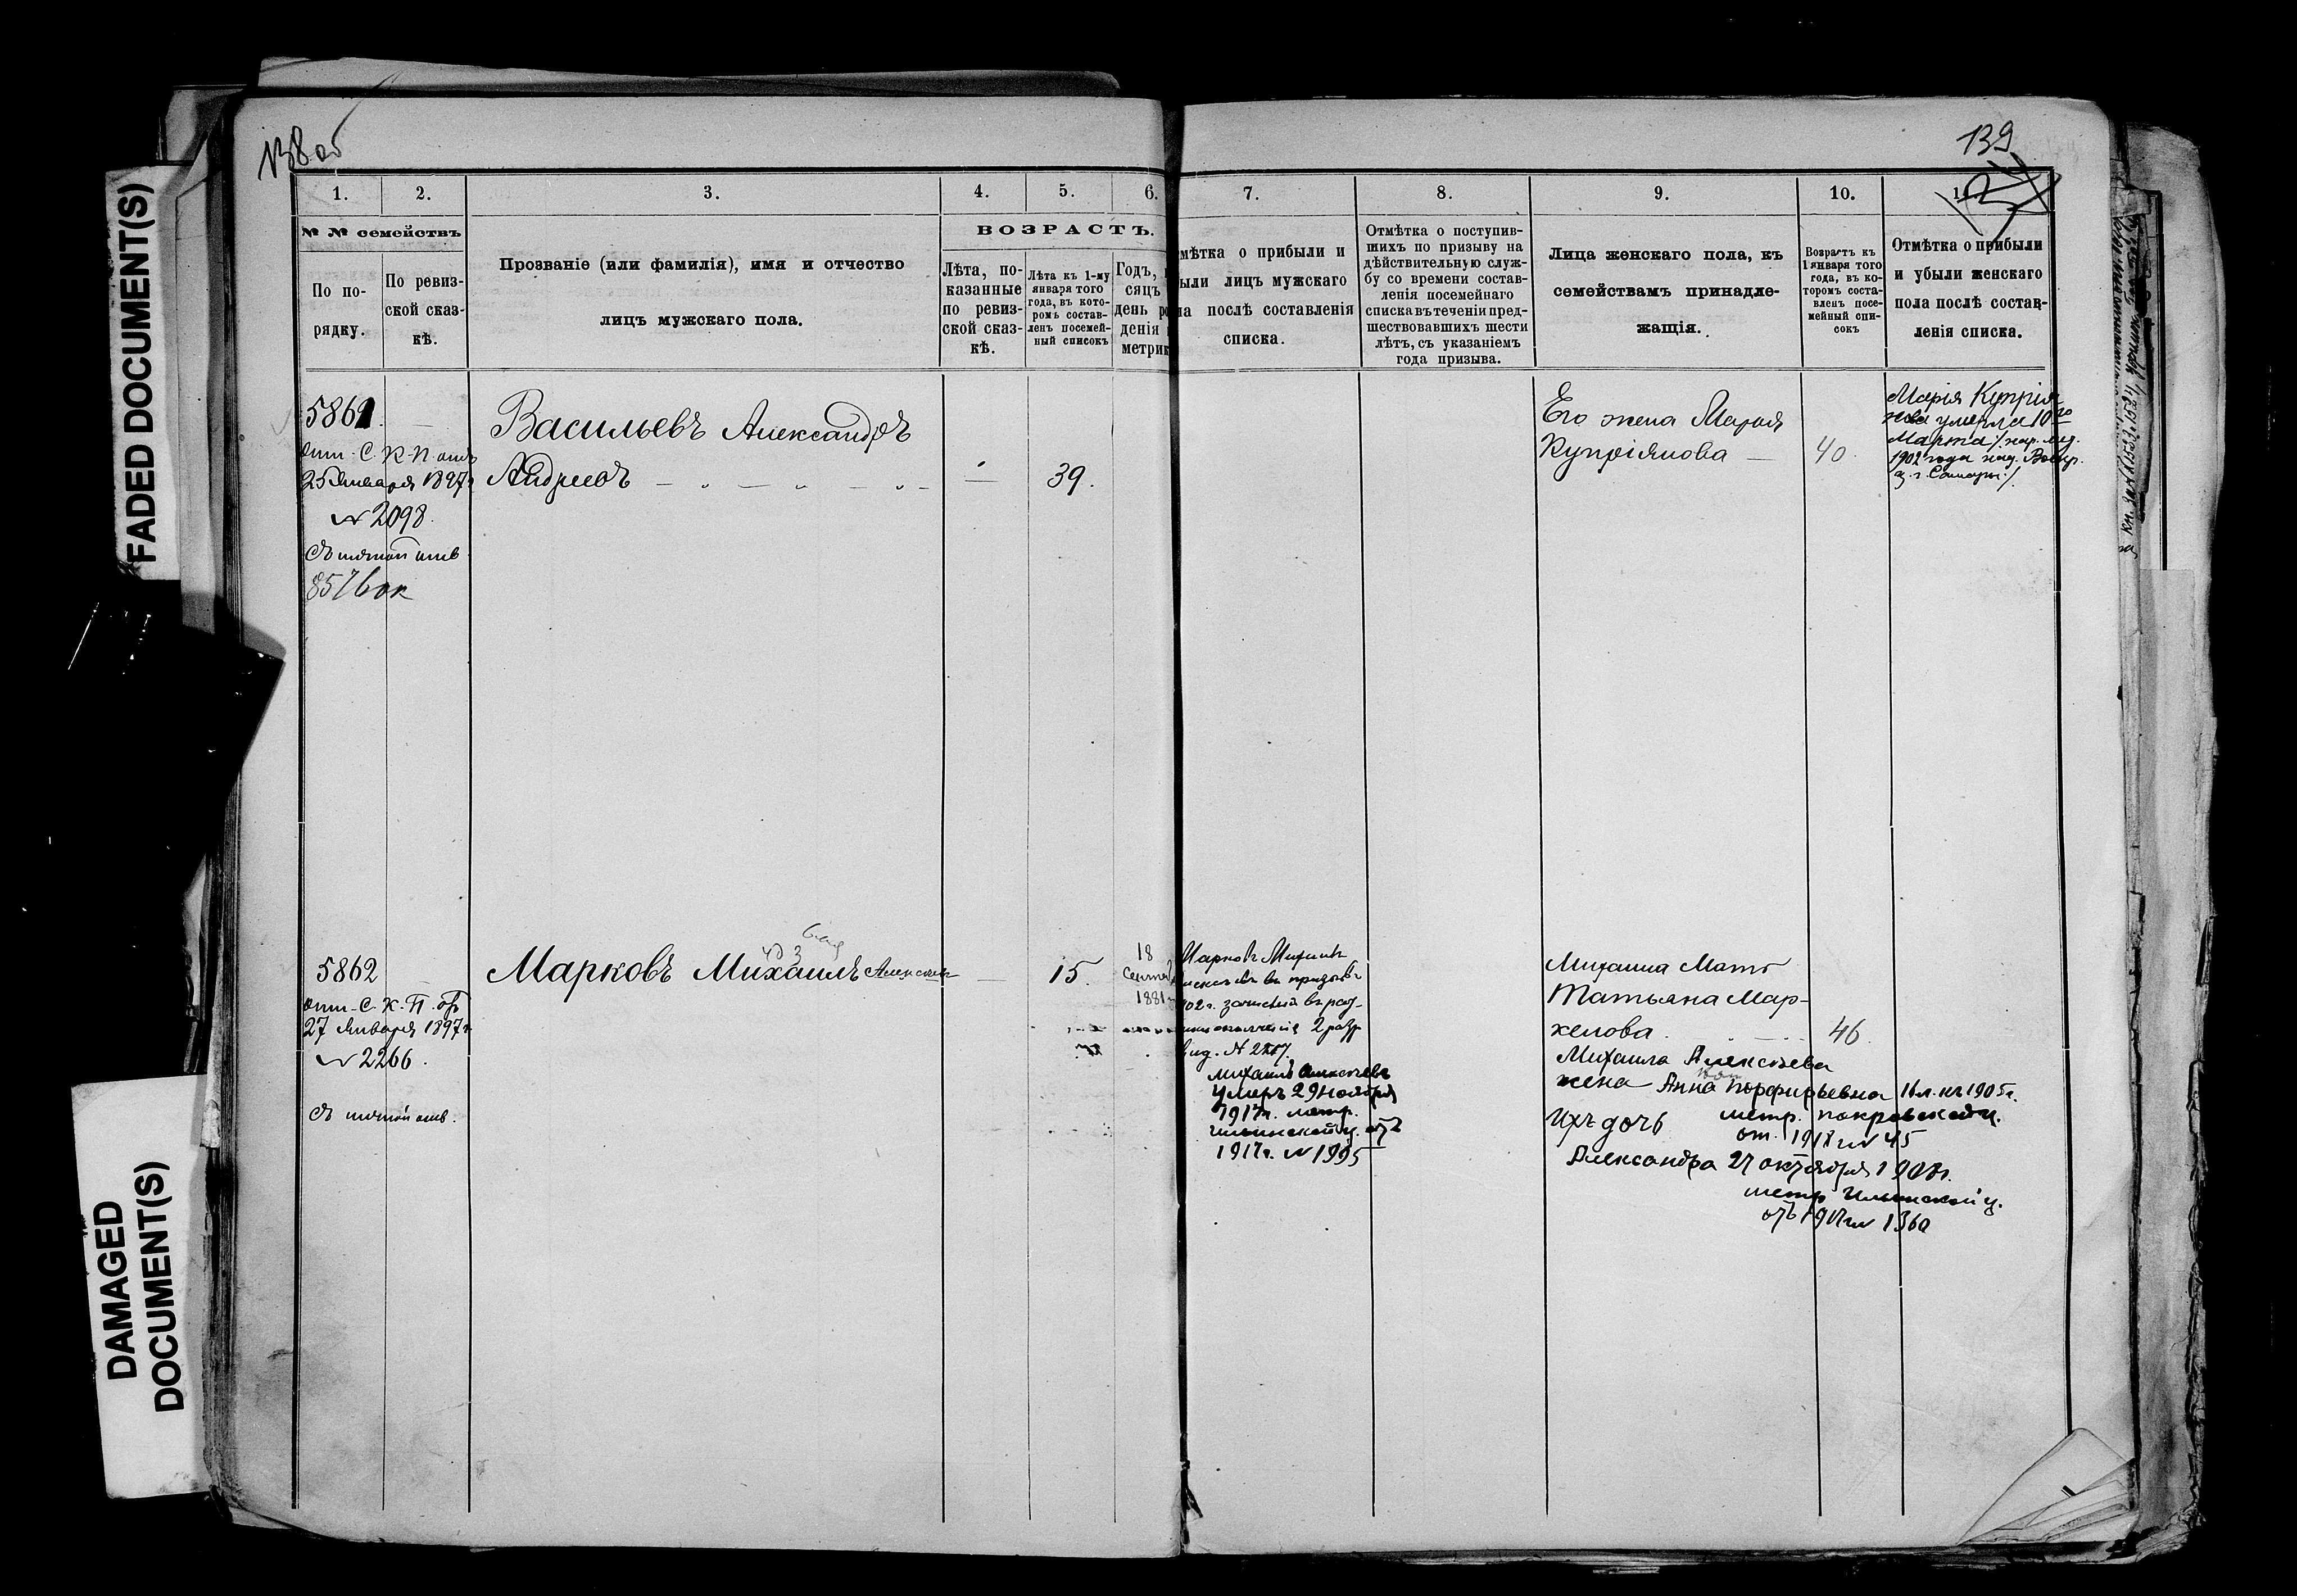 FADED DOCUMENT(S)
DAMAGED
DOCUMENT(S)
138 об
139
1.
2.
3.
4.
5.
6.
7.
8.
9.
10.
№ № семействъ
По по-
рядку.
По ревиз-
ской сказ-
кѣ.
Прозваніе (или фамилія), имя и отчество
лицъ мужскаго пола.
ВОЗРАСТЪ.
Лѣта, по-
казанные
по ревиз-
ской сказ-
кѣ.
Лѣта къ 1-му
января того
года, въ кото-
ромъ состав-
ленъ посемей-
ный списокъ
Годъ,
сяцъ
день ро
денія
метрик
мѣтка о прибыли и
ыли лицъ мужскаго
ла послѣ составленія
списка.
Отмѣтка о поступив-
шихъ по призыву на
дѣйствительную служ-
бу со времени состав-
ленія посемейнаго
списка въ теченіи пред-
шествовавшихъ шести
лѣтъ, съ указаніемъ
года призыва.
Лица женскаго пола, къ
семействамъ принадле-
жащія.
Возрастъ къ
1 января того
года, въ ко-
торомъ соста-
вленъ посе-
мейный спи-
сокъ
Отмѣтка о прибыли
и убыли женскаго
пола послѣ состав-
ленія списка.
5861.
опт. С. К. П. отъ
25 Января 1897 г
№ 2098.
8576 ок
Васильевъ Александръ
Андреевъ
39.
Его жена Марья
Купріянова
40.
Марія Купрія-
нова умерла 10го
Марта
1902 года
г. Самары
5862
опт. С. К. П. отъ
27 Января 1897 г
№ 2266.
Марковъ Михаилъ Алексѣев
15.
18
Сентяб
1881 г
Марковъ Михаилъ
въ призывъ
902 г. зачисленъ въ рат-
2 разр
Михаилъ Алексѣевъ
умеръ 29 ноября
1917 г. метр.
Ильинской ц. отъ
1917 г. № 1995
Михаила Мать
Татьяна Мар-
келова.
46.
Михаила Алексѣева
жена Анна Порфирьевна 16 л. къ 1905 г.
метр. Покровской ц.
от. 1918 г № 45
Ихъ дочь
Александра 27 октября
метр Ильинской ц.
№ 1360